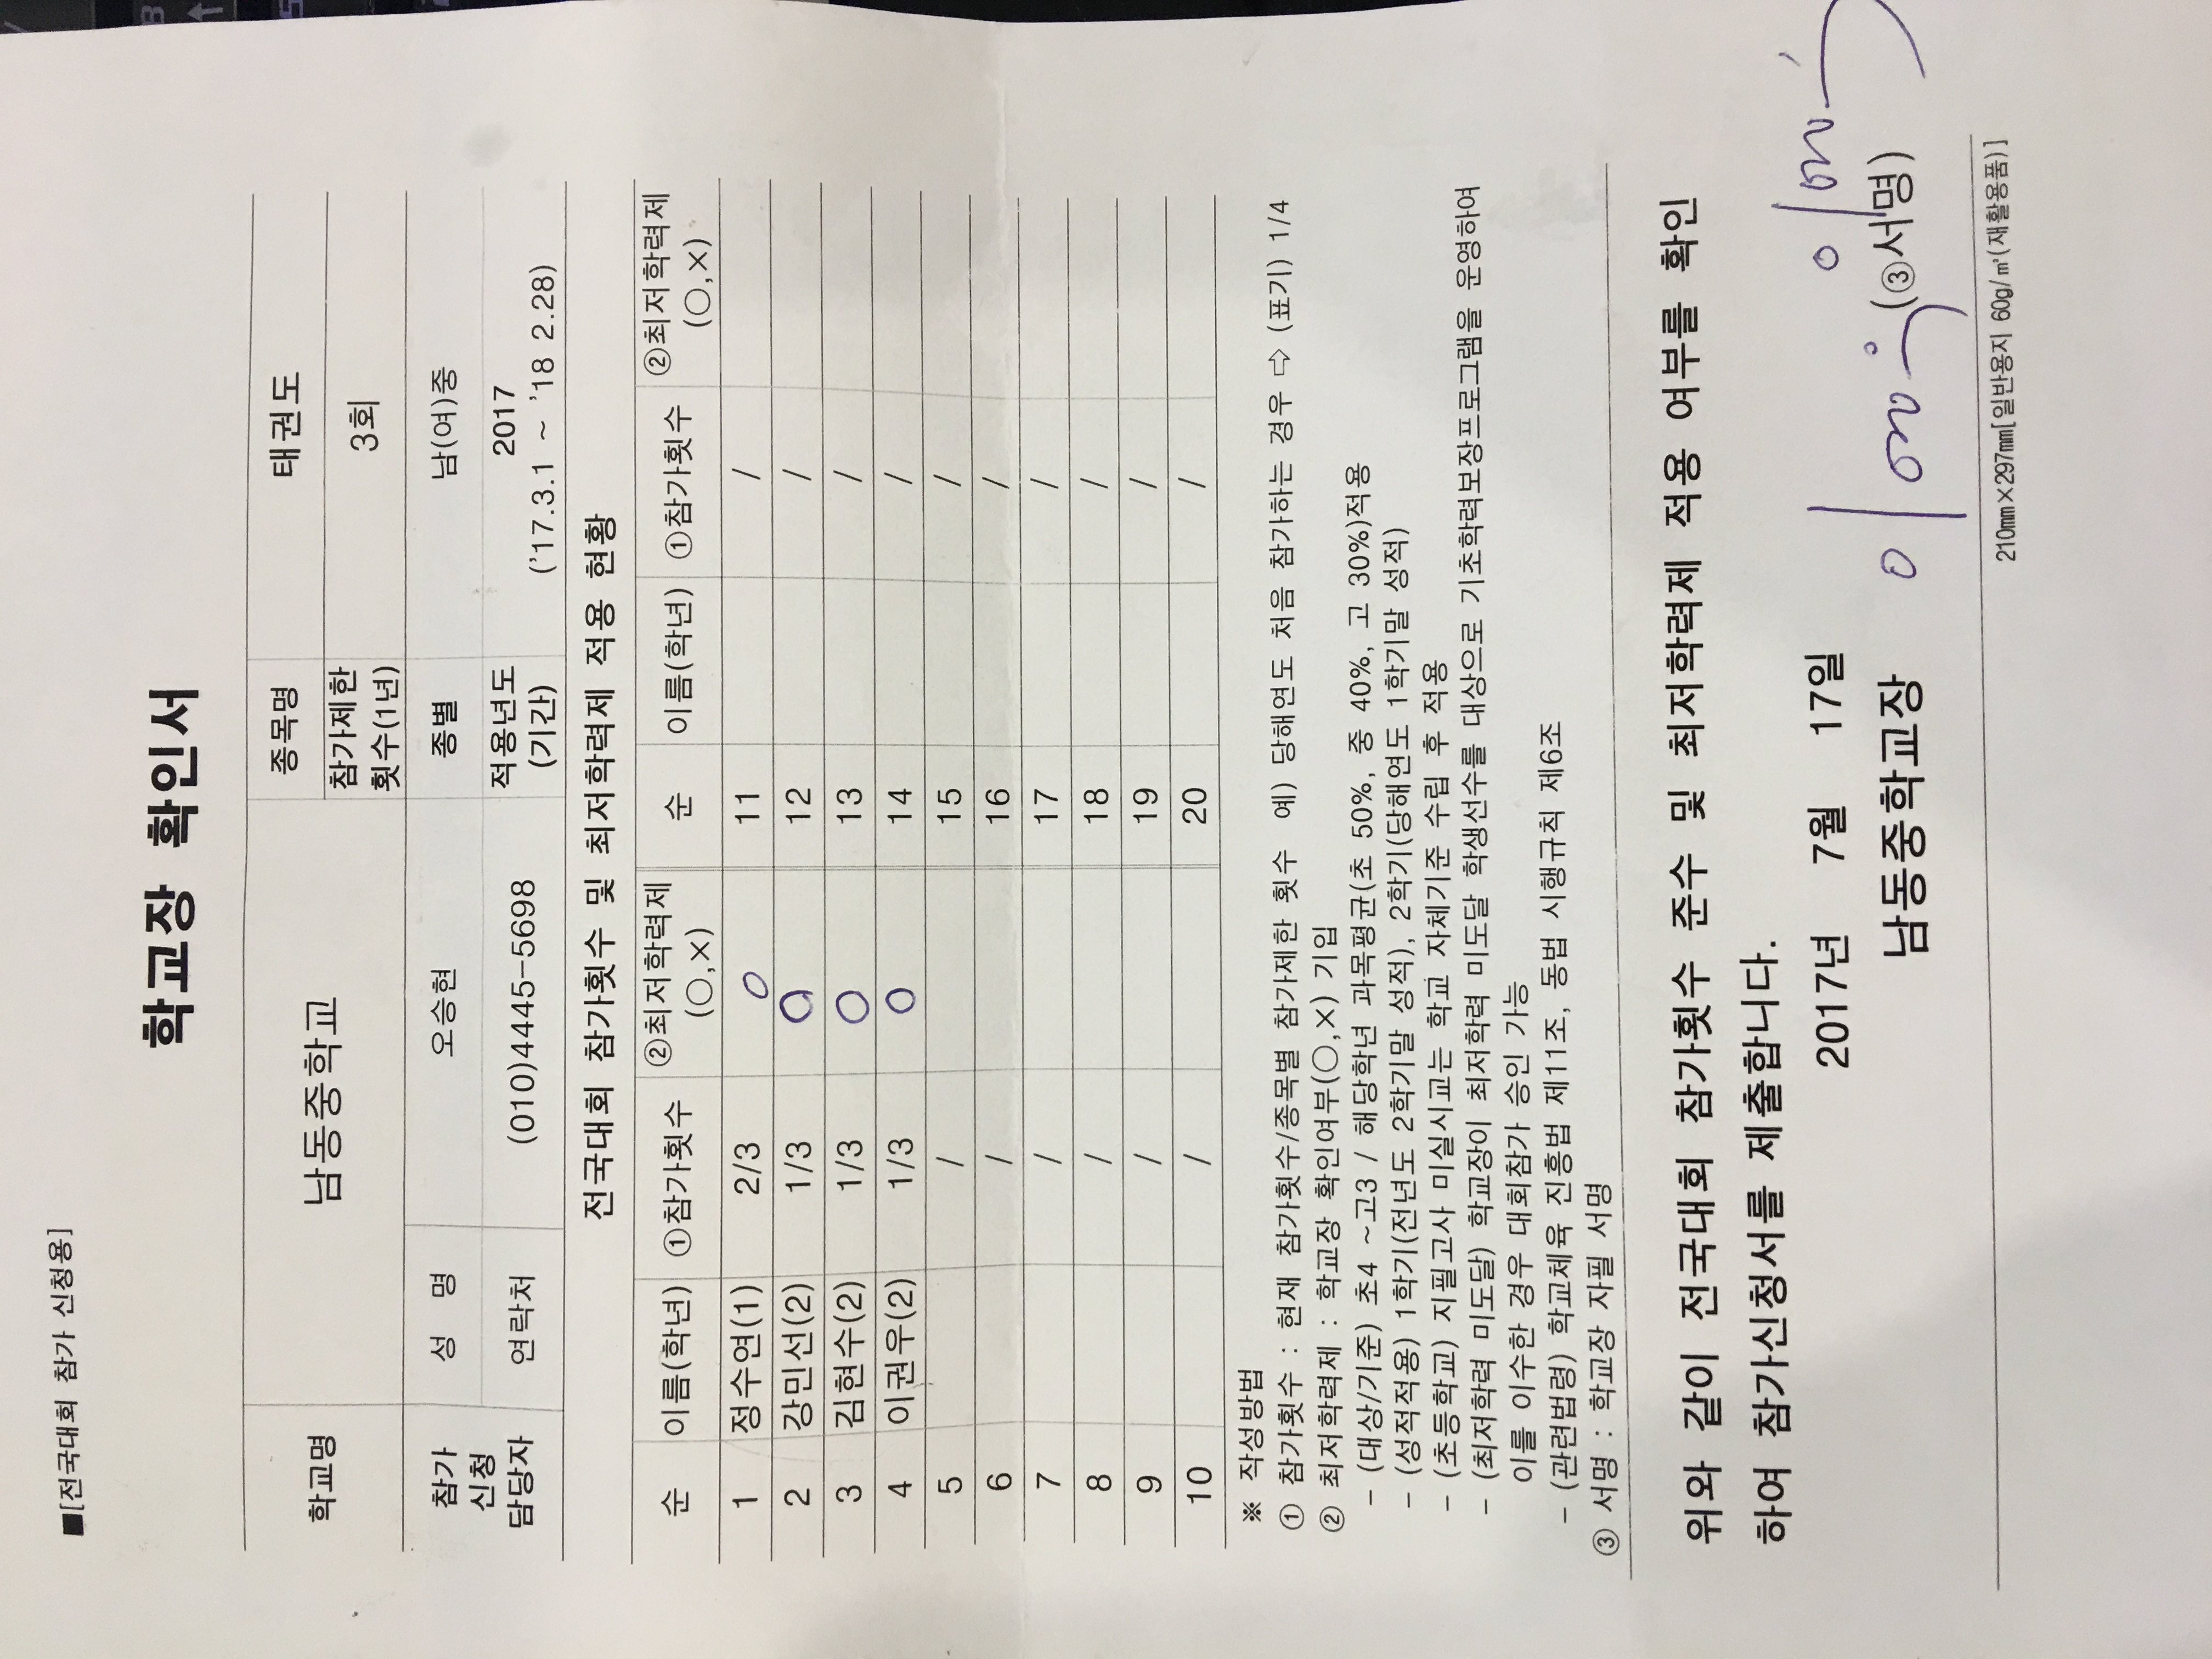 ■[전국대회 참가 신청용]
학교장 확인서
학교명 남동중학교 종목명 태권도
참가제한 횟수(1년) 3회
참가 신청 담당자 성 명 오승현 종별 남(여)중
연락처 (010)4445-5698 적용년도 (기간) 2017 ('17.3.1 ~ '18 2.28)
전국대회 참가횟수 및 최저학력제 적용 현황
순 이름(학년) ①참가횟수 ②최저학력제 (○,×) 순 이름(학년) ①참가횟수 ②최저학력제 (○,×)
1 정수연(1) 2/3 ○ 11 /
2 강민선(2) 1/3 ○ 12 /
3 김현수(2) 1/3 ○ 13 /
4 이권우(2) 1/3 ○ 14 /
5 / 15 /
6 / 16 /
7 / 17 /
8 / 18 /
9 / 19 /
10 / 20 /
※ 작성방법
① 참가횟수 : 현재 참가횟수/종목별 참가제한 횟수 예) 당해연도 처음 참가하는 경우 ⇨ (표기) 1/4
② 최저학력제 : 학교장 확인여부(○,×) 기입
- (대상/기준) 초4 ~고3 / 해당학년 과목평균(초 50%, 중 40%, 고 30%)적용
- (성적적용) 1학기(전년도 2학기말 성적), 2학기(당해연도 1학기말 성적)
- (초등학교) 지필고사 미실시교는 학교 자체기준 수립 후 적용
- (최저학력 미도달) 학교장이 최저학력 미도달 학생선수를 대상으로 기초학력보장프로그램을 운영하여
이를 이수한 경우 대회참가 승인 가능
- (관련법령) 학교체육 진흥법 제11조, 동법 시행규칙 제6조
③ 서명 : 학교장 자필 서명
위와 같이 전국대회 참가횟수 준수 및 최저학력제 적용 여부를 확인
하여 참가신청서를 제출합니다.
2017년 7월 17일
남동중학교장 (③서명)
210㎜×297㎜[일반용지 60g/㎡(재활용품)]